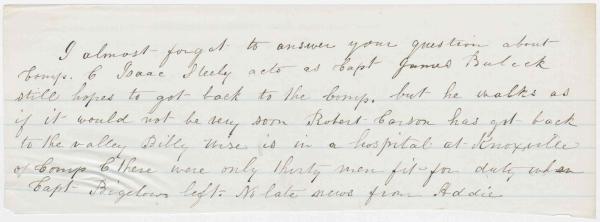 I almost forgot to answer your question about
Comp. C Isaac Neely acts as Capt James Buleck
still hopes to got back to the Comp. but he walks as
if it would not be very soon Robert Carson has got back
to the valley Billy Wise is in a hospital at Knoxville
of Comp C there were only thirty men fit for duty when
Capt Bigelow left. No late news from Addie